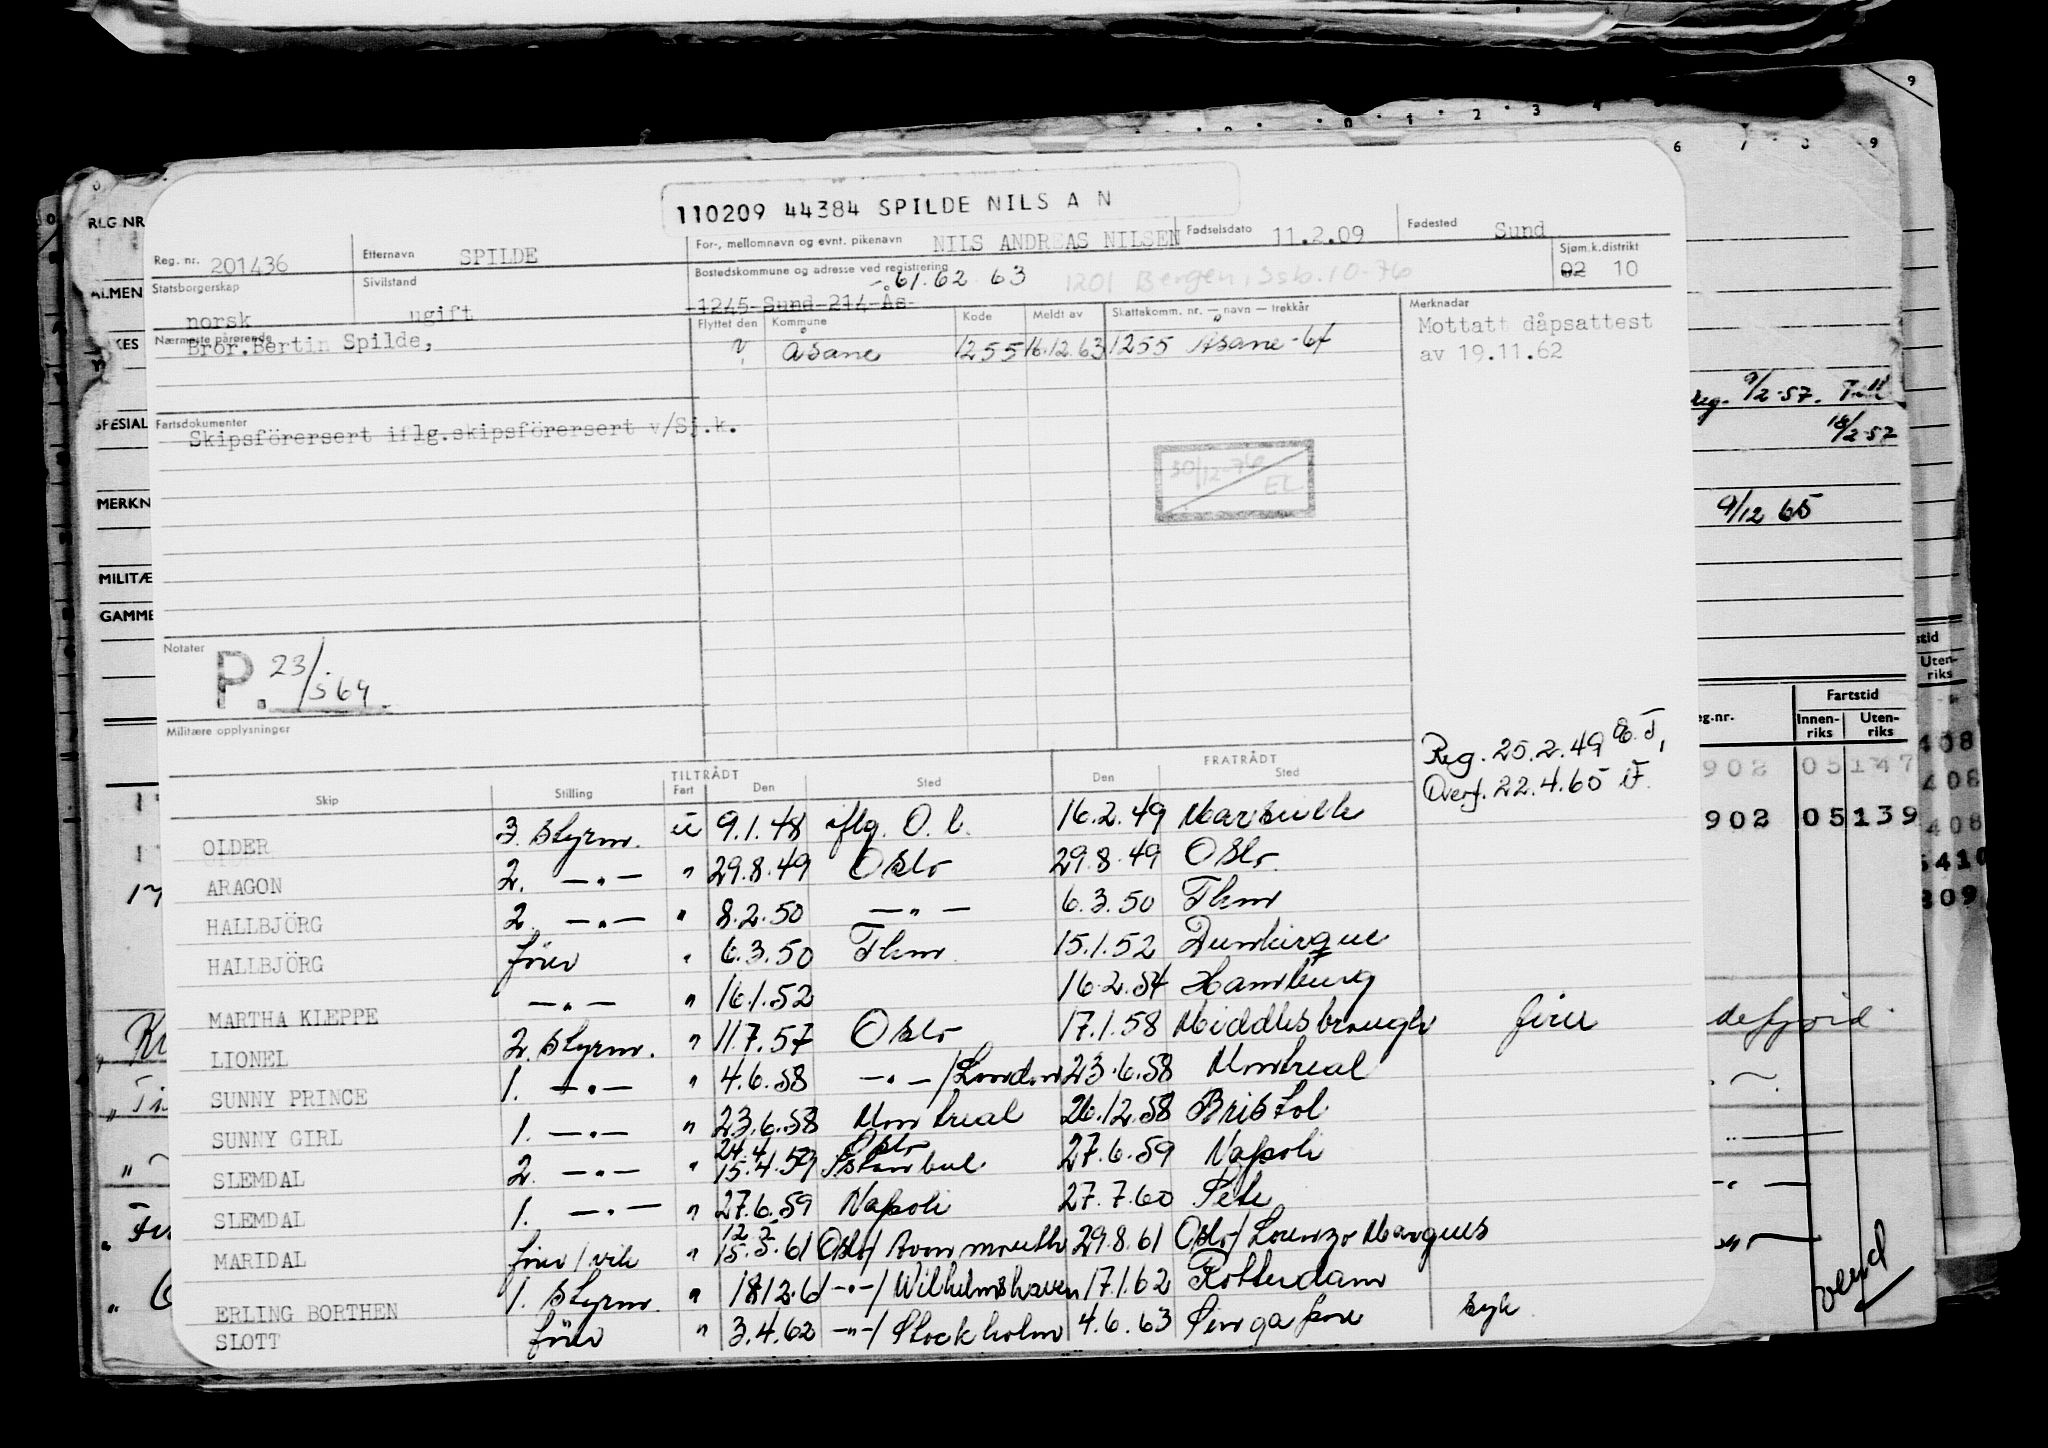 110209 44384 SPILDE NILS A N
Reg. nr. 201436 Etternavn SPILDE For-, mellomnavn og evnt. pikenavn NILS ANDREAS NILSEN Fødselsdato 11.2.09 Fødested Sund
Statsborgerskap norsk Sivilstand ugift Bostedskommune og adresse ved registrering 1245 Sund 214 Ås 61.62 63 1201 Bergen, Ssb.10-76 Sjøm.k.distrikt 02 10
Nærmeste pårørende Bror.Bertin Spilde,
Flyttet den Kommune Kode Meldt av Skattekomm. nr. — navn — trekkår Merknader
? Åsane 1255 16.12.63 1255 Åsane-64 Mottatt dåpsattest
av 19.11.62
Fartsdokumenter
Skipsförersert iflg.skipsförersert v/Sj.k.
30/12-76 EL
Notater
P. 23/5 69.
Militære opplysninger
Reg. 25.2.49
Overf. 22.4.65
TILTRÅDT FRATRÅDT
Skip Stilling Fart Den Sted Den Sted
OLDER 3. Styrm. u 9.1.48 iflg. O.b. 16.2.49 Marseille
ARAGON 2. —"— " 29.8.49 Oslo 29.8.49 Oslo
HALLBJÖRG 2. —"— " 8.2.50 —"— 6.3.50 Thm
HALLBJÖRG förer " 6.3.50 Thm 15.1.52 Dunkirque
MARTHA KLEPPE —"— " 16.1.52 16.2.54 Hamburg
LIONEL 2. Styrm. " 11.7.57 Oslo 17.1.58 Middlesbrough ferie
SUNNY PRINCE 1. —"— " 4.6.58 —"—/London 23.6.58 Montreal
SUNNY GIRL 1. —"— " 23.6.58 Montreal 26.12.58 Bristol
24.4 Oslo
SLEMDAL 2. —"— " 15.4.59 Istanbul 27.6.59 Napoli
SLEMDAL 1. —"— " 27.6.59 Napoli 27.7.60 Sete
12 5
MARIDAL förer/vik " 15.5.61 Oslo/Avonmouth 29.8.61 Oslo/Lourenzo Marques
ERLING BORTHEN 1. Styrm. " 18.12.61 —"—/Wilhelmshaven 17.1.62 Rotterdam
SLOTT förer " 3.4.62 —"—/Stockholm 4.6.63 Singapore syk
RLG NR
ALMEN
SPESIAL
MERKN
MILITÆ
GAMME
6 7 8 9
9/2-57.
18/2-57
9/12 65
eg.nr. Fartstid
Innen-riks Uten-riks
902 05 147
902 05 139
Uten-riks
408
408
408
5410
309
defjord
vend